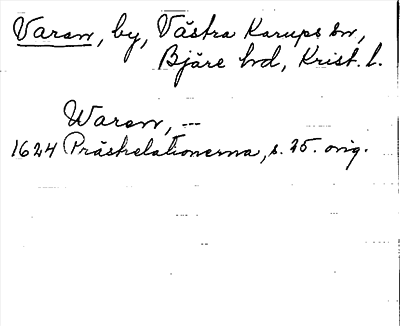 Varan, by, Västra Karups sn,
Bjäre hd, Krist. l.
Waren, ---
1624 Prästrelationerna, s. 25. orig.